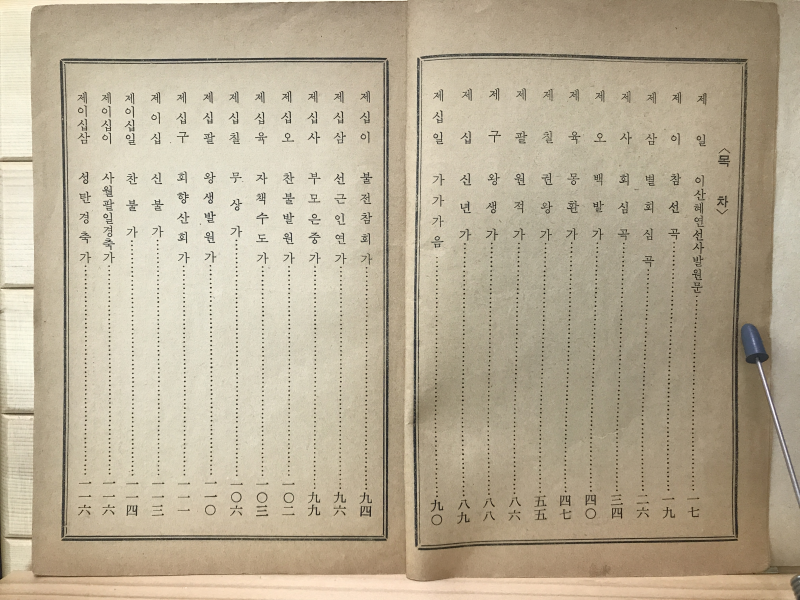 〈목 차〉
제 일 이산혜연선사발원문 一七
제 이 참선곡 一九
제 삼 별회심곡 二六
제 사 회심곡 三四
제 오 백발가 四〇
제 육 몽환가 四七
제 칠 권왕가 五五
제 팔 원적가 八六
제 구 왕생가 八八
제 십 신년가 八九
제십일 가가가음 九〇
제십이 불전참회가 九四
제십삼 선근인연가 九六
제십사 부모은중가 九九
제십오 찬불발원가 一〇二
제십육 자책수도가 一〇三
제십칠 무상가 一〇六
제십팔 왕생발원가 一一〇
제십구 회향산회가 一一一
제이십 신불가 一一三
제이십일 찬불가 一一四
제이십이 사월팔일경축가 一一六
제이십삼 성탄경축가 一一六